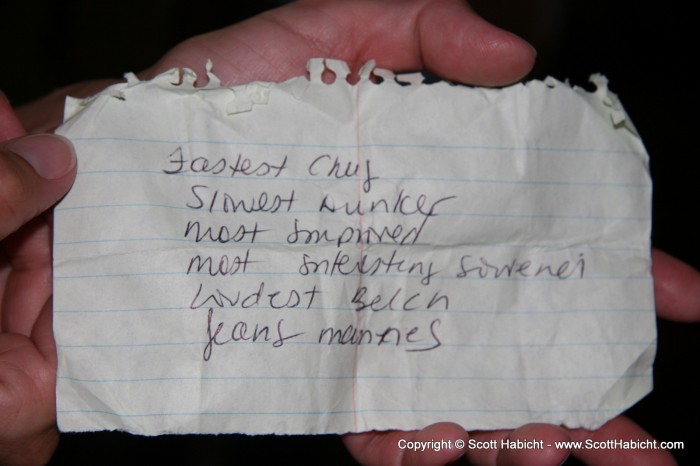 Fastest Chug
Slowest Dunker
most Improved
most Interesting Souvenir
Loudest Belch
Jeans
Copyright © Scott Habicht - www.ScottHabicht.com